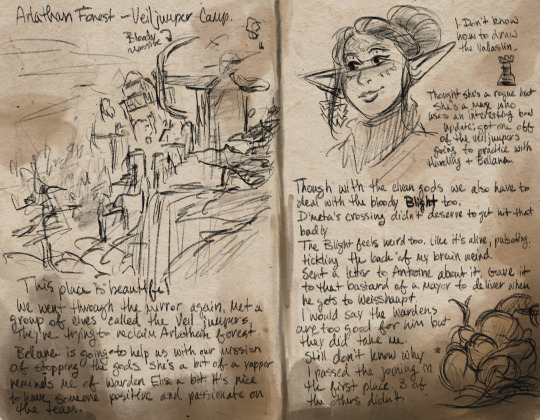 Arlathan Forest - Veiljumper Camp.
Bloody
massive
This place is beautiful!
We went through the mirror again. Met a
group of elves called the Veil jumpers.
They're trying to reclaim Arlathan forest.
Belara is going to help us with our mission
of stopping the gods. She's a bit of a yapper
reminds me of Warden Elsa a bit. It's nice
to have someone positive and passionate on
the team.
I Don't know
how to draw
the Valaslin.
Thought she's a rogue but
she's a mage who
uses an interesting bow
Update: got one off
of the veiljumpers
going to practice with
Harding + Belara.
Though with the elvan gods we also have to
deal with the bloody Blight too.
D'meta's crossing didn't deserve to get hit that
badly.
The Blight feels weird too. Like it's alive, pulsating.
tickling the back of my brain weird.
Sent a letter to Antoine about it. Gave it
to that bastard of a Mayor to deliver when
he gets to Weisshaupt.
I would say the Wardens
are too good for him but
they did take me.
Still don't know why
I passed the joining in
the first place. 3 of
the others didn't.